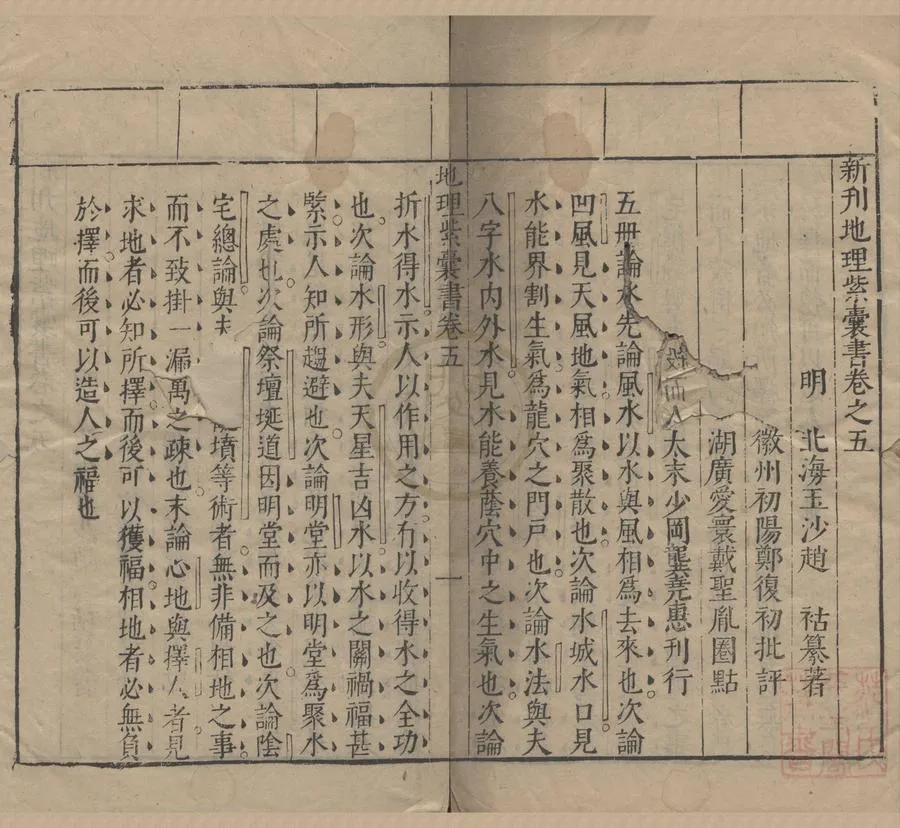 新刋地理紫囊書卷之五
明 北海玉沙趙 祜纂著
徽州初陽鄭復初批評
湖廣愛寰戴聖胤圈點
太末少岡龔堯惠刋行
五册論水先論風水以水與風相爲去來也次論
凹風見天風地氣相爲聚散也次論水城水口見
水能界割生氣爲龍穴之門戸也次論水法與夫
八字水內外水見水能養蔭穴中之生氣也次論
地理紫囊書卷五 一
折水得水示人以作用之方有以收得水之全功
也次論水形與夫天星吉凶水以水之關禍福甚
緊示人知所趨避也次論明堂亦以明堂爲聚水
之處也次論祭壇埏道因明堂而及之也次論陰
宅總論與夫 墳等術者無非備相地之事
而不致掛一漏萬之疎也末論心地與擇人者見
求地者必知所擇而後可以獲福相地者必無負
於擇而後可以造人之福也